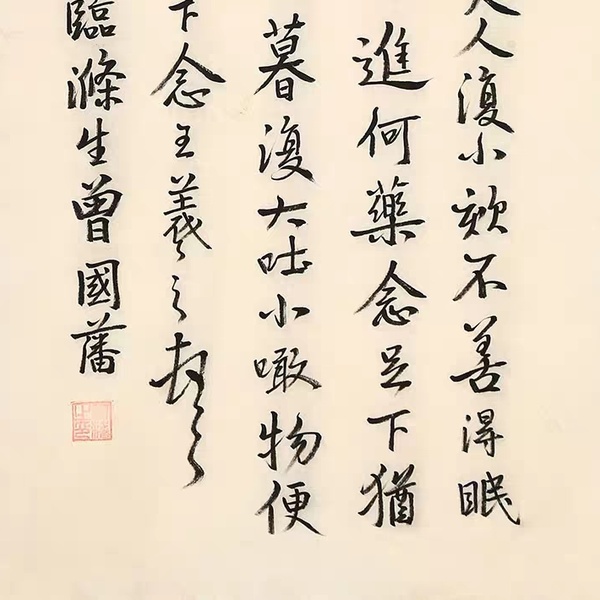 人復小欬不善得眠
進何藥念足下猶
暮復大吐小噉物便
下念王羲之頓首
臨滌生曾國藩